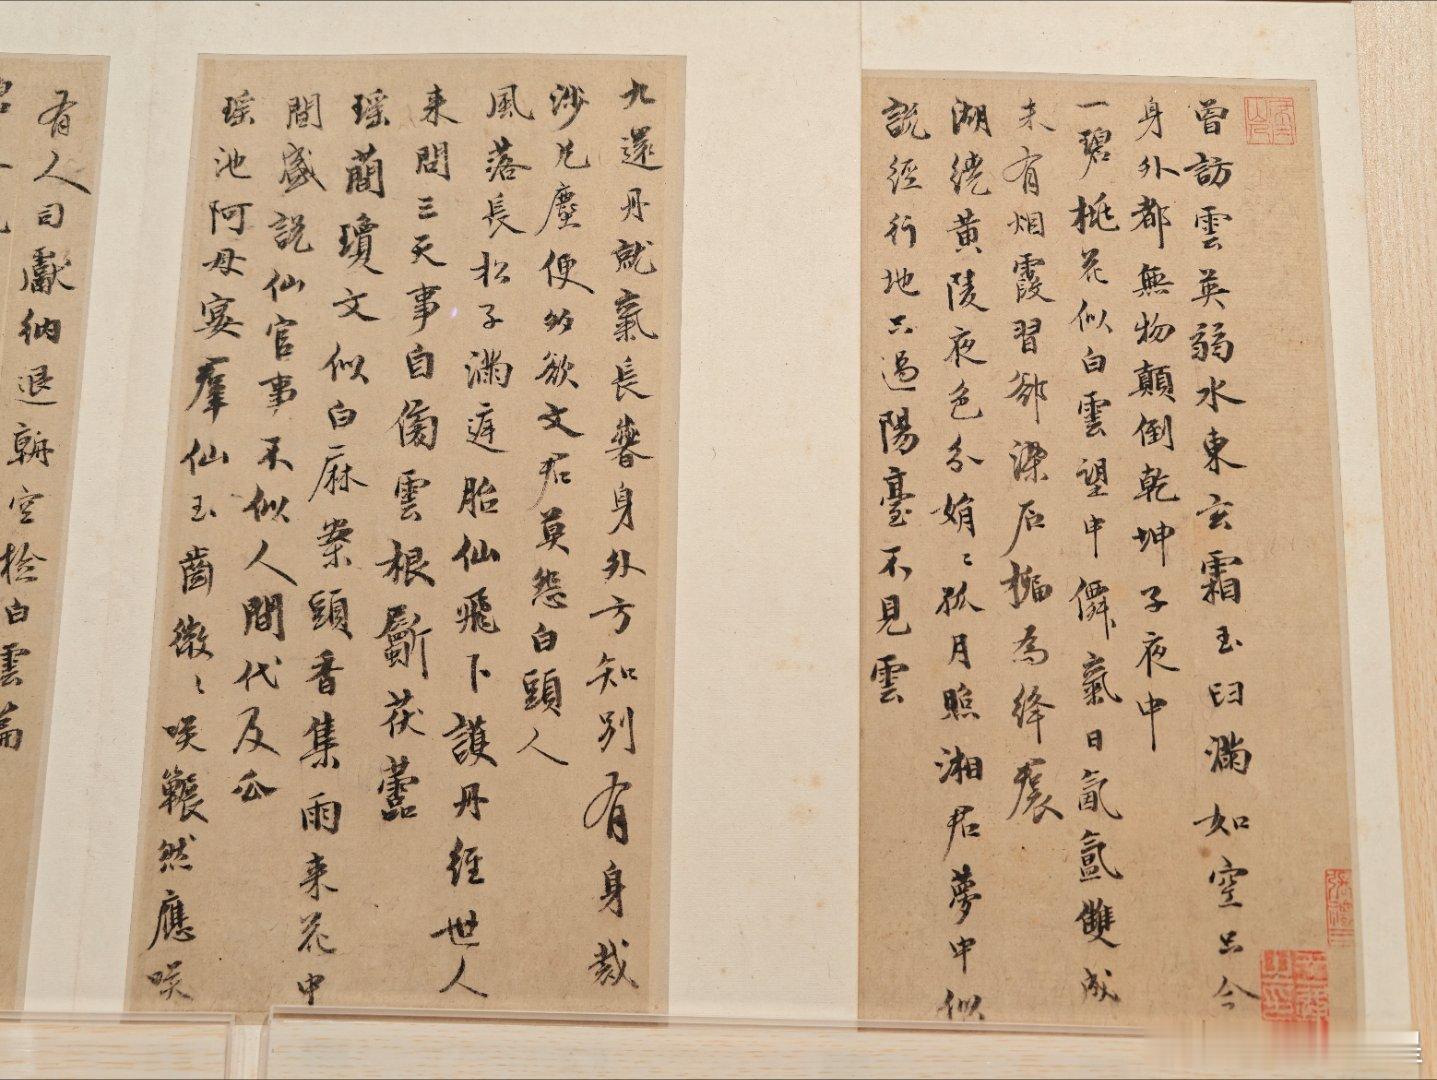 曾訪雲英弱水東玄霜玉臼滿如空只今
身外都無物顛倒乾坤子夜中
一碧桃花似白雲望中僊氣日氤氳雙成
未有烟霞習卻染石榴為絳裠
湖繞黄陵夜色分娟〻孤月照湘君夢中似
說經行地只過陽臺不見雲
九還丹就氣長春身外方知別有身裁
沙兄塵便欲文君莫怨白頭人
風落長松子滿庭胎仙飛下護丹經世人
来問三天事自傷雲根斸茯䕩
瑶蕳瓊文似白麻案頭香集雨来花中
間感說仙官事不似人間代及瓜
瑶池阿母宴羣仙玉齒微〻咲囅然應咲
有人司獻納退朝空檢白雲篇